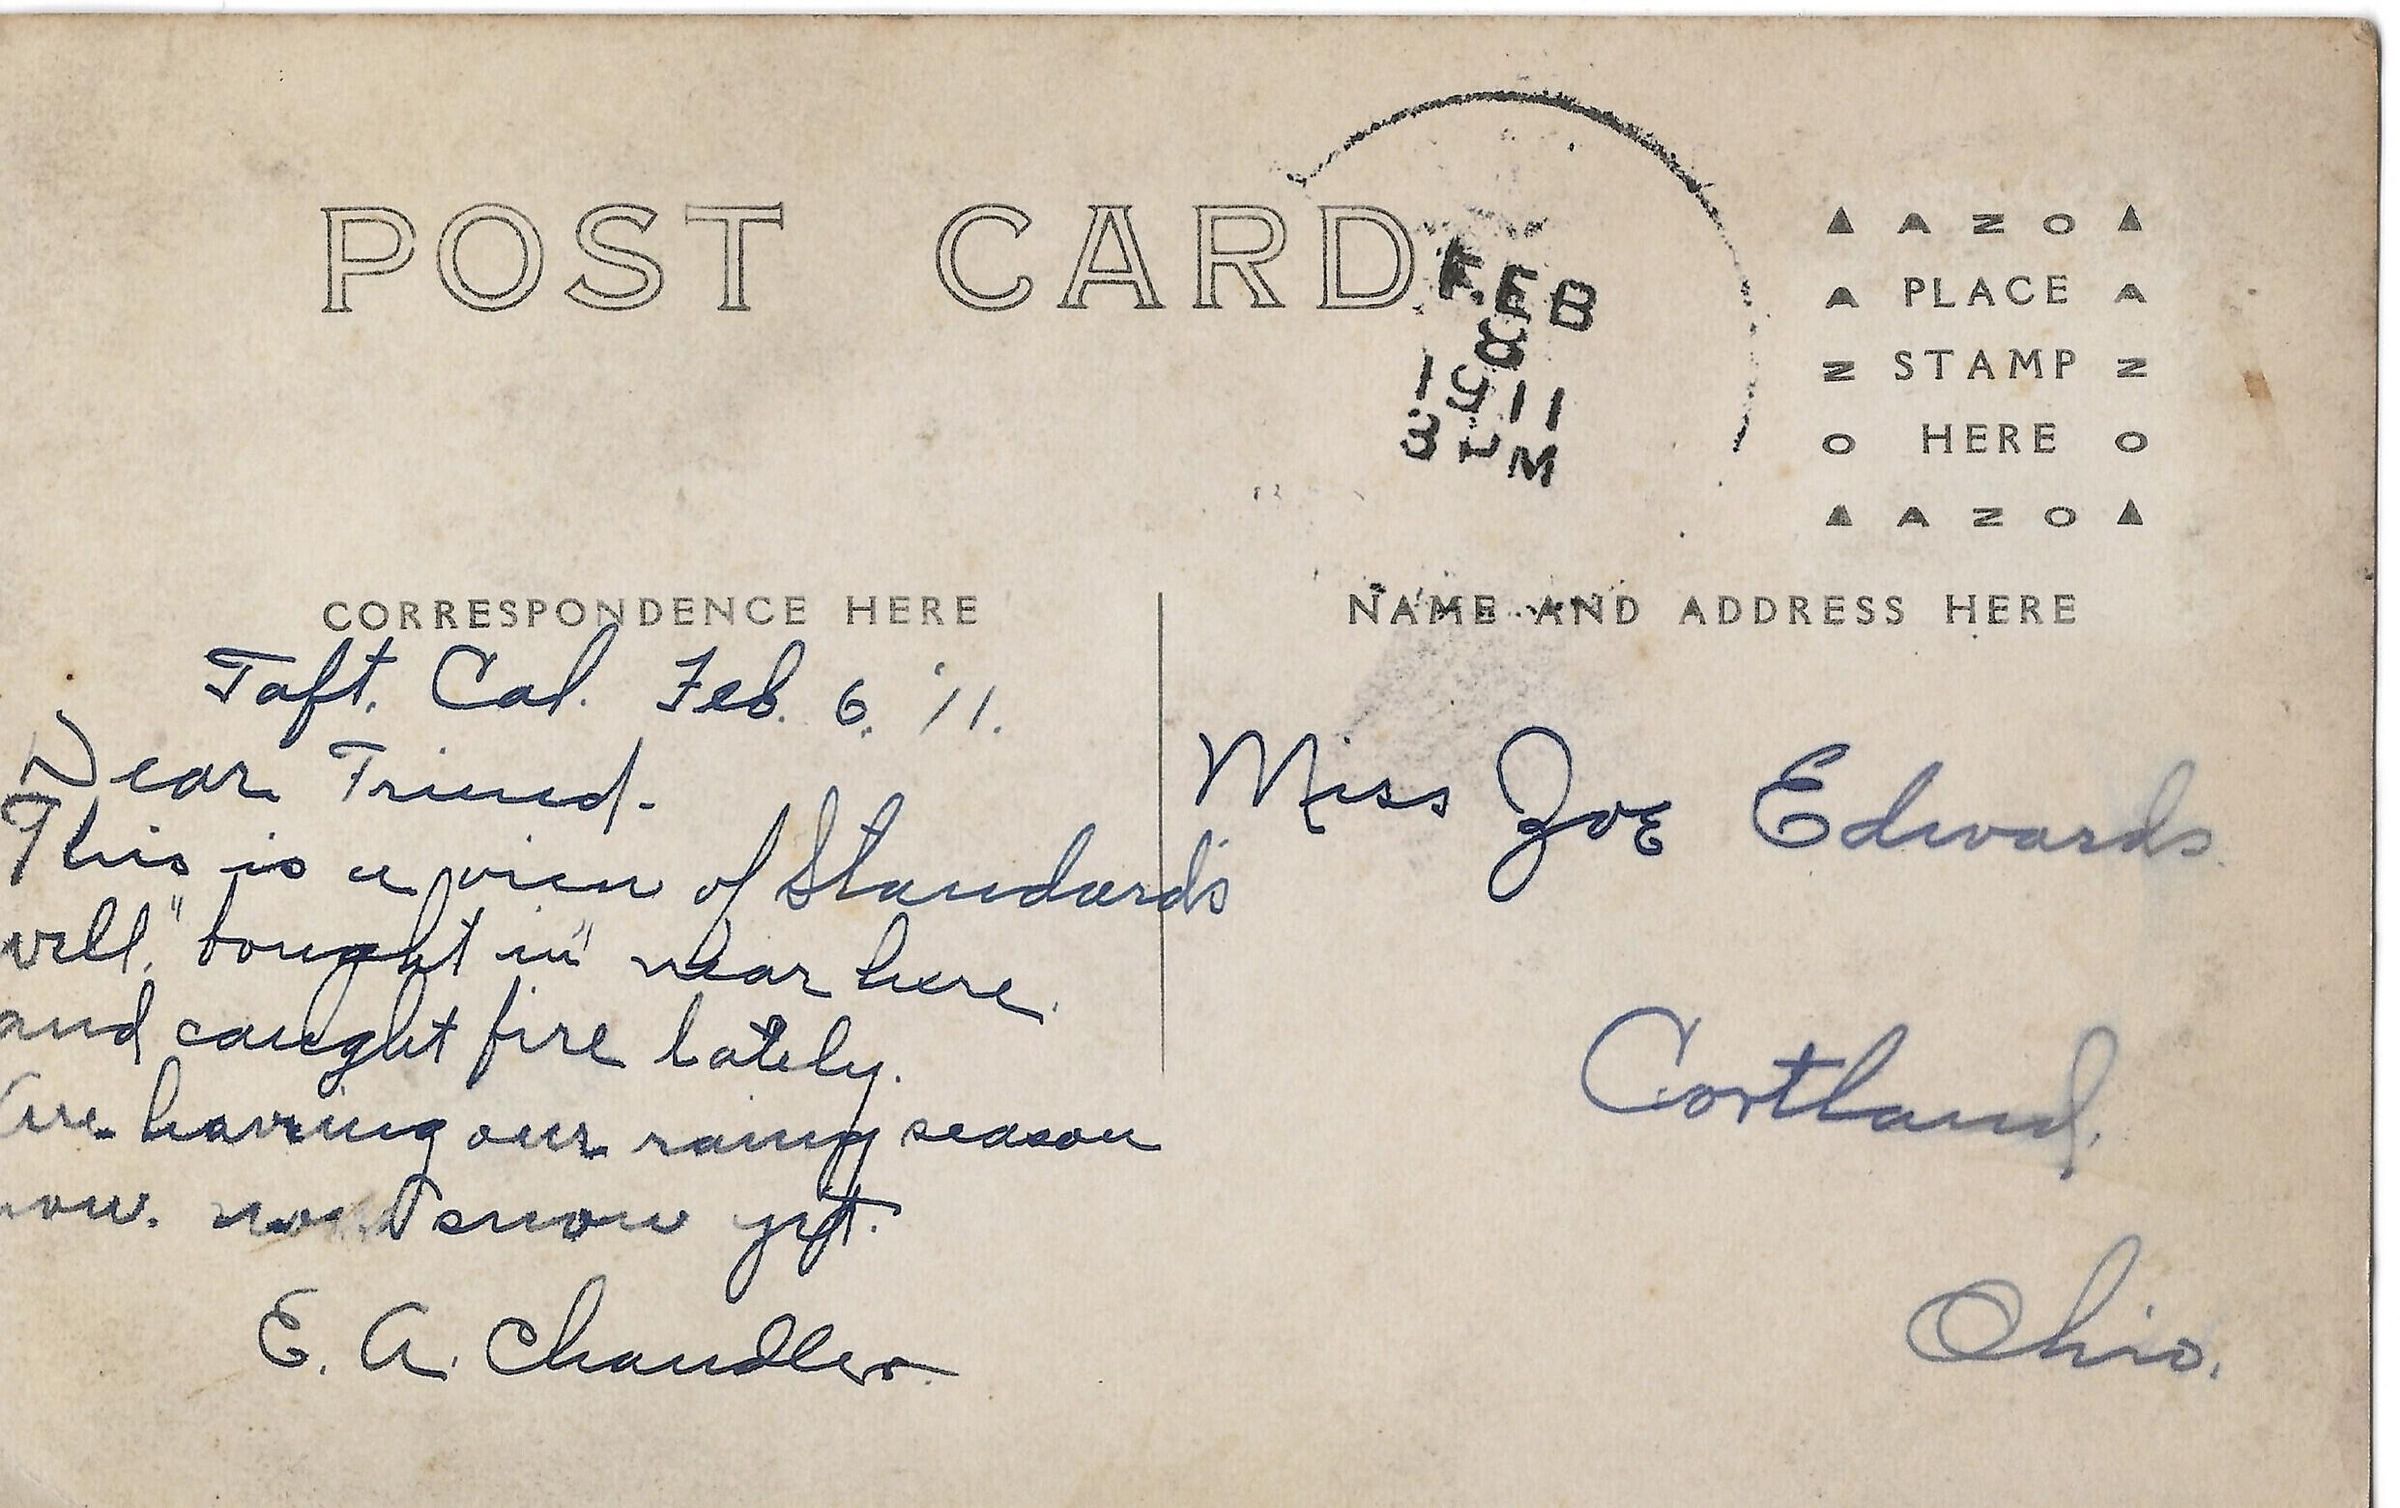 POST CARD
FEB
8
1911
3 PM
▲ A Z O ▲
A PLACE A
Z STAMP Z
O HERE O
▲ A Z O ▲
CORRESPONDENCE HERE
NAME AND ADDRESS HERE
Taft. Cal. Feb. 6. '11.
Dear Friend.
This is a view of Standard's
well, "bought in" near here.
and caught fire lately.
Are having our rainy season
now. snow yet.
E. A. Chandler.
Miss Zoe Edwards.
Cortland.
Ohio.